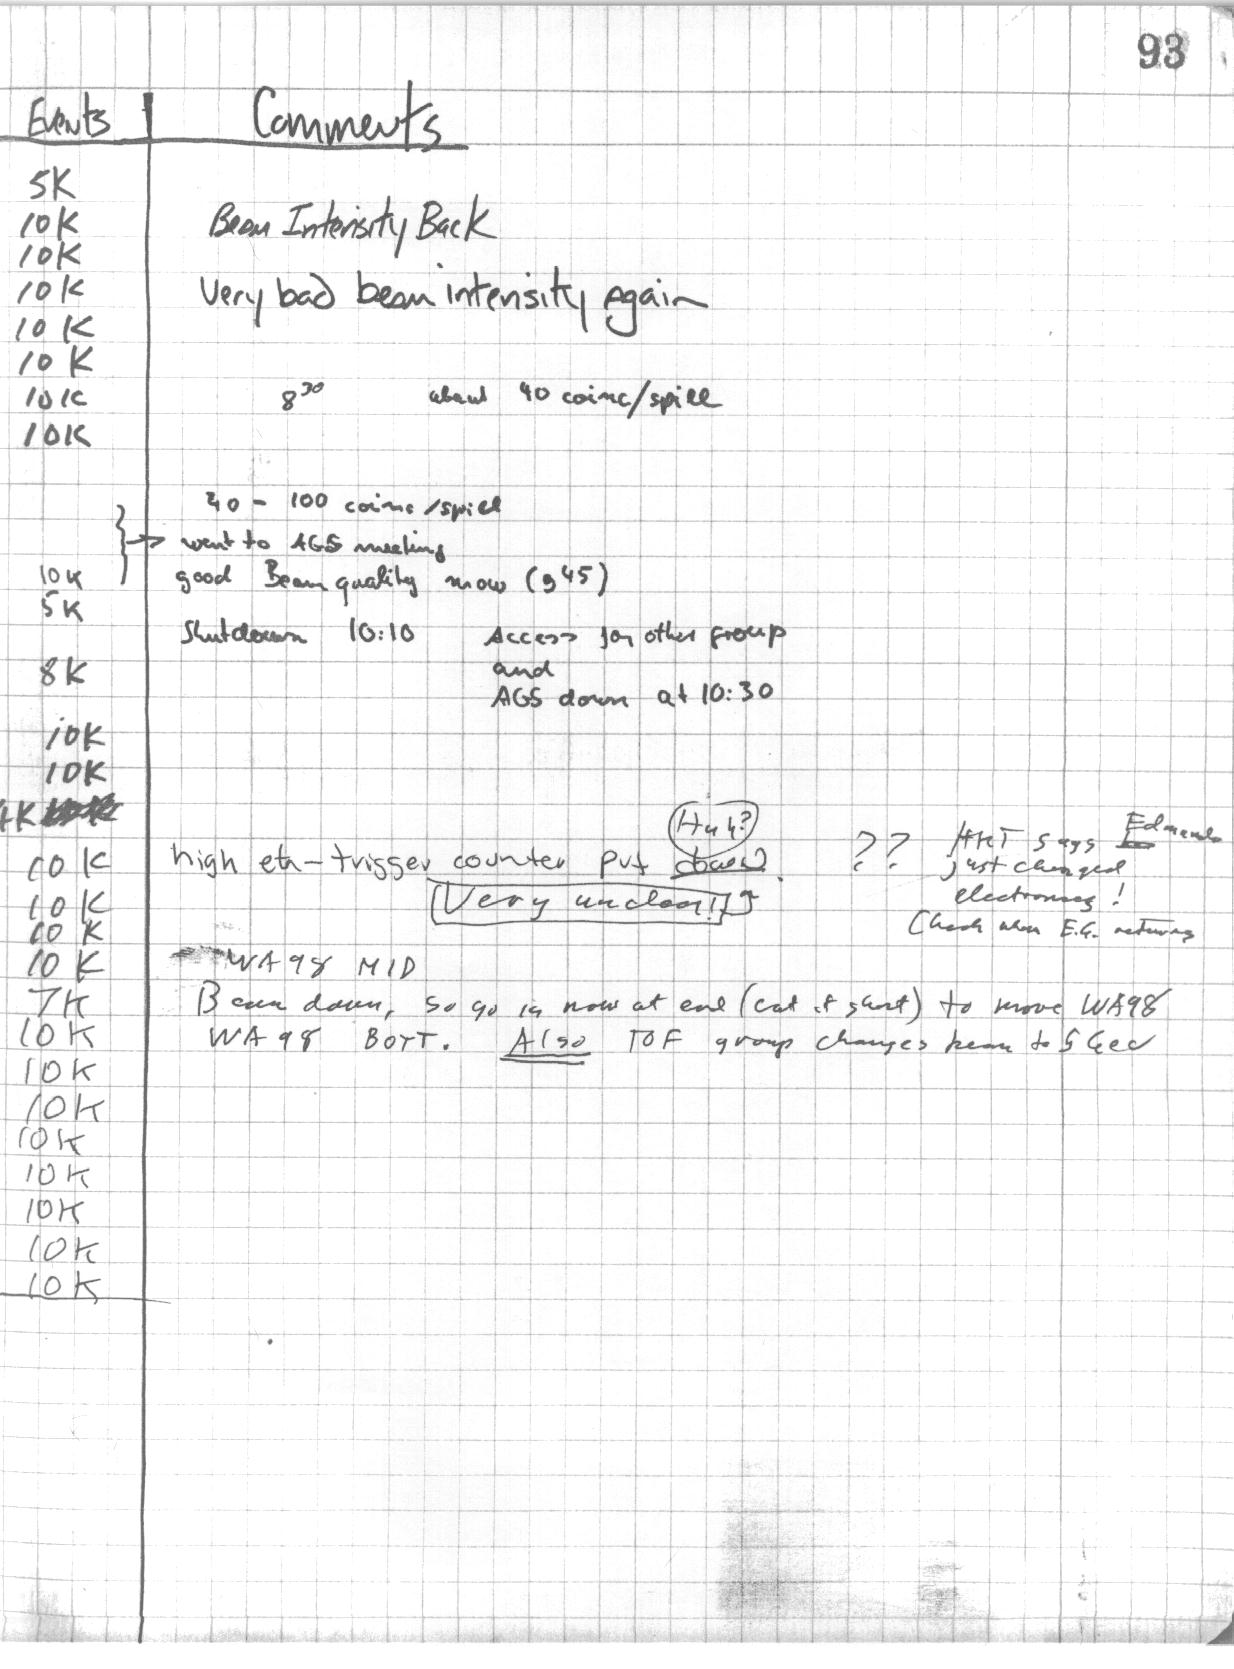 93
Events Comments
5K
10K Beam Intensity Back
10K
10K Very bad beam intensity again
10K
10K
10K 8³⁰ about 40 coinc/spill
10K
40 - 100 coinc/spill
went to AGS meeting
10K good Beam quality now (9⁴⁵)
5K
Shutdown 10:10 Access for other group
8K and
AGS down at 10:30
10K
10K
4K
Huh?
10K high eta-trigger counter put down. ?? says Edmundo
just changed
electronics!
10K Very unclear!!
Check when E.G. returns
10K
10K WA98 MID
7K Beam down, so go in now at end (cut it short) to move WA98
10K WA98 BOTT. Also TOF group changes beam to 5 GeV
10K
10K
10K
10K
10K
10K
10K